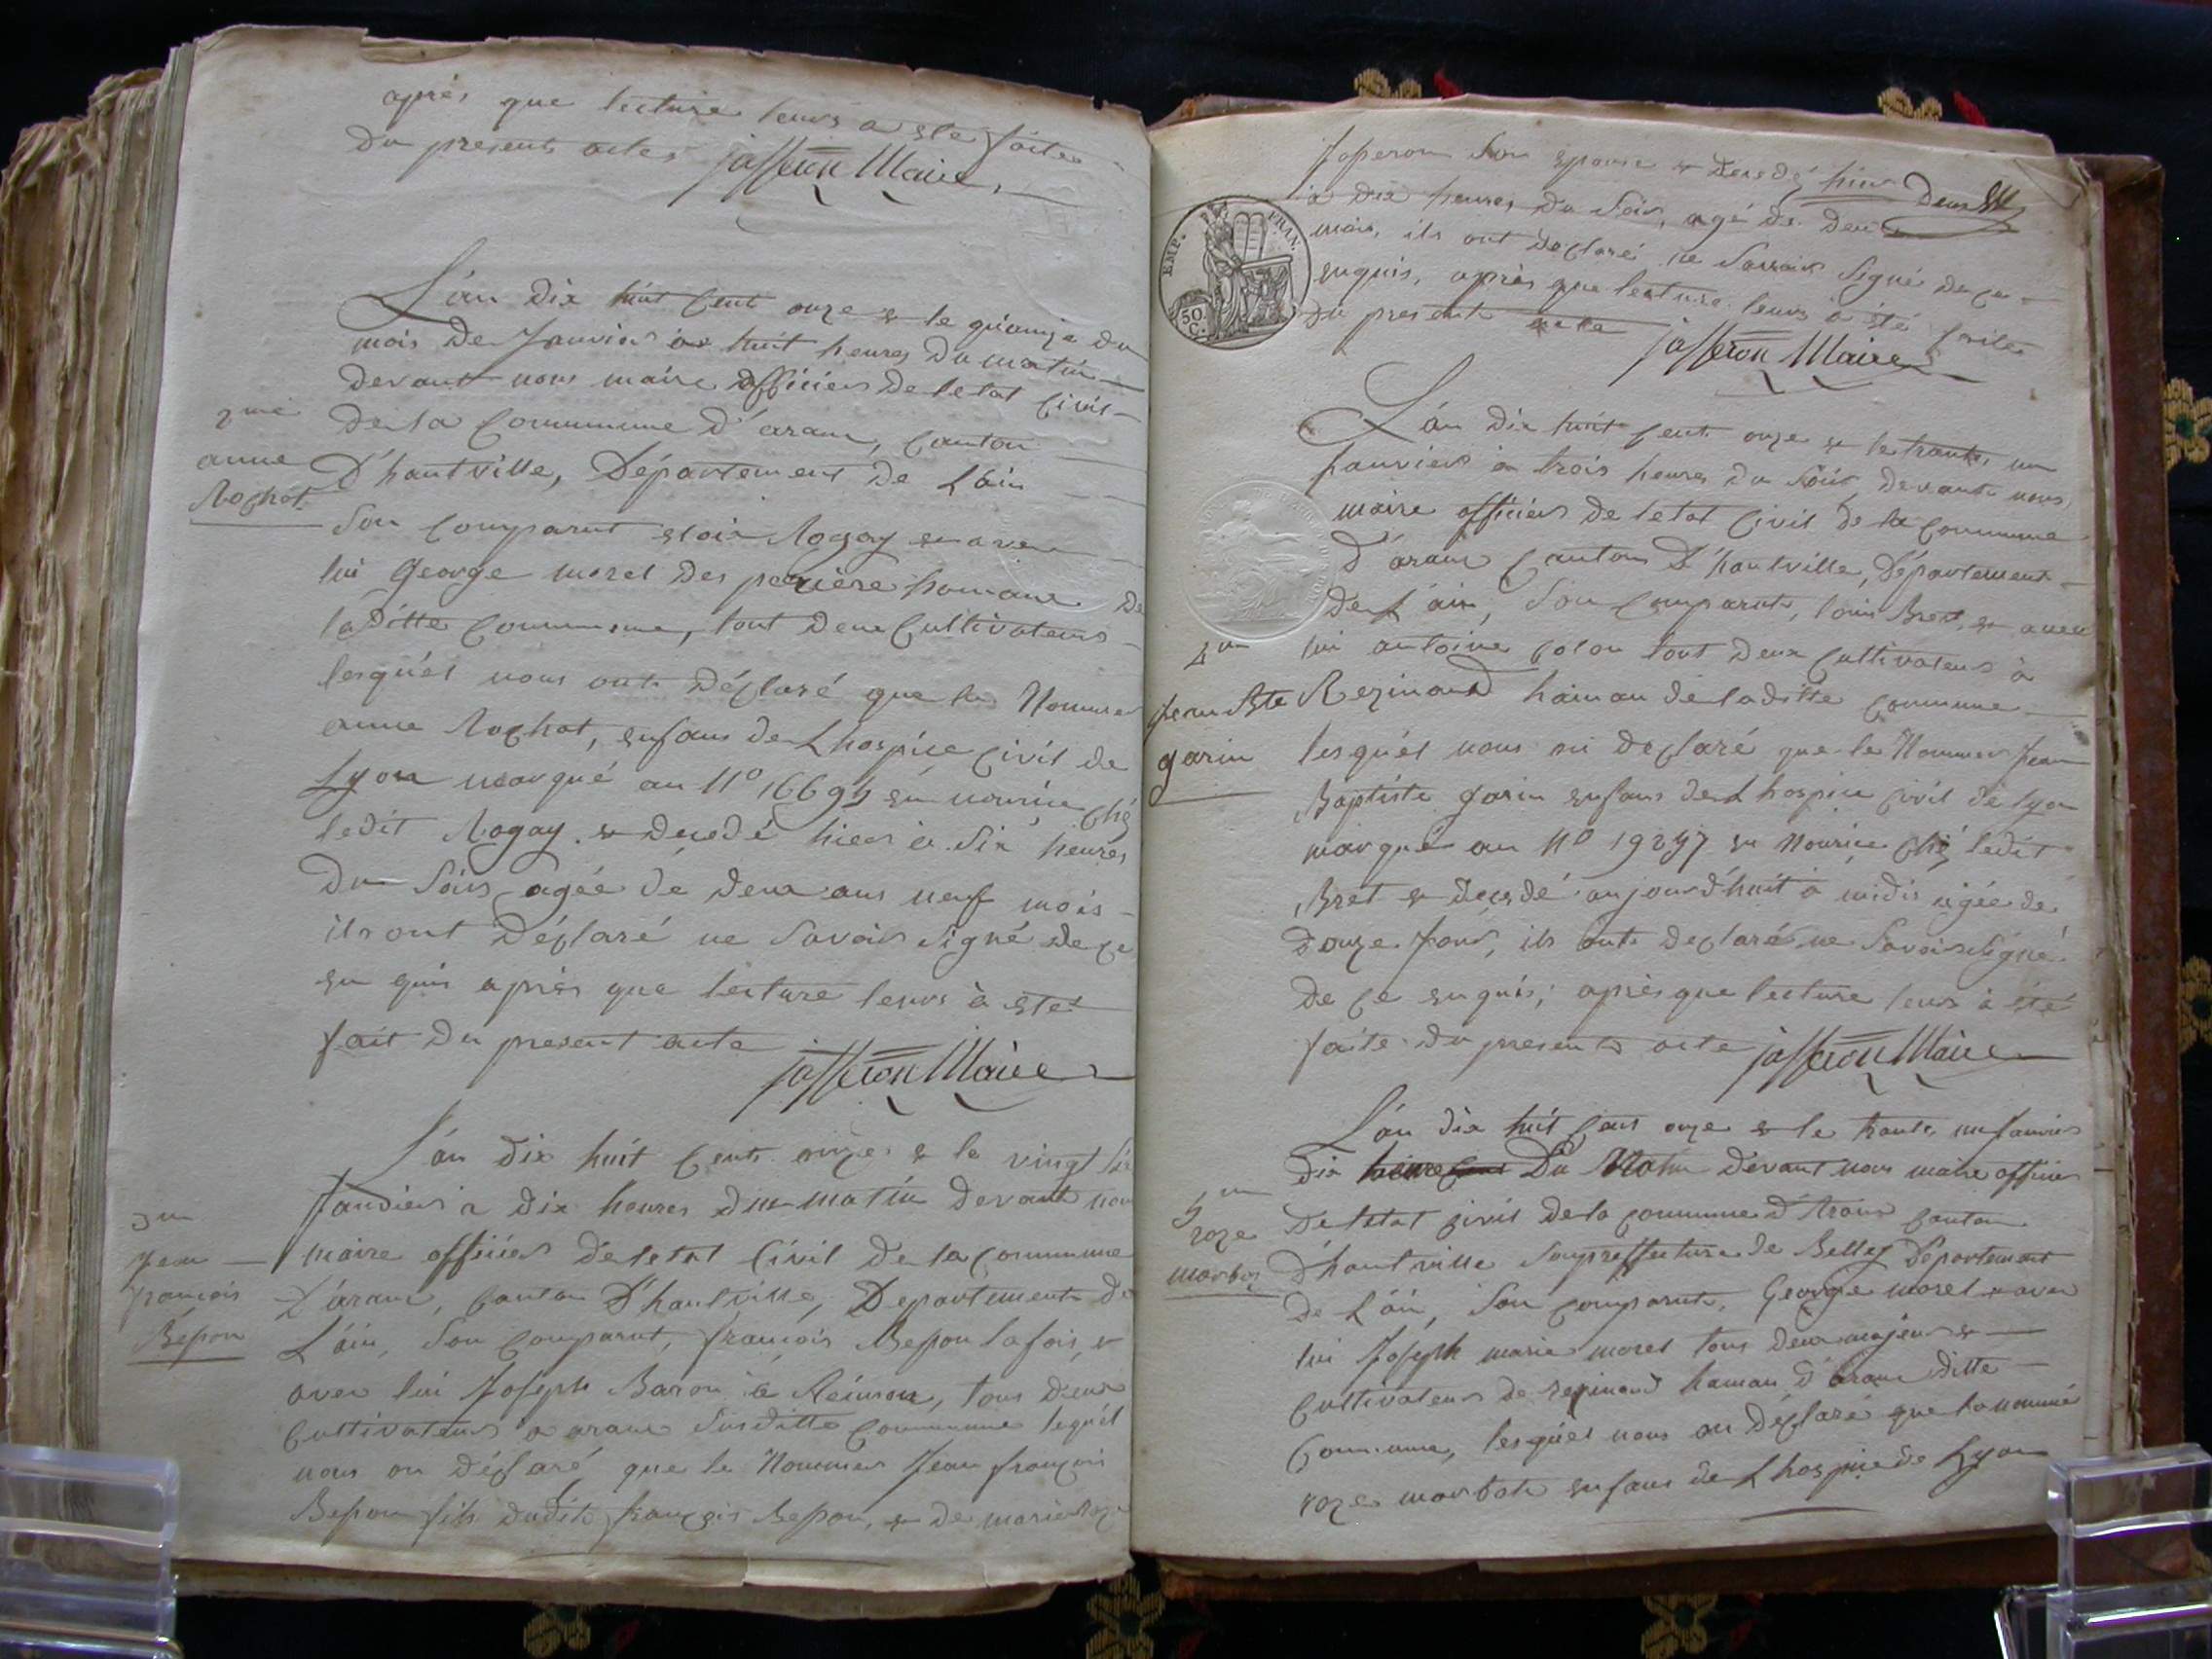 après que lecture leurs a eté faite
du present acte jasseron Maire
L'án dix huit Cent onze & le quainze du
mois De Janvier à huit heures Du matin
devant nous maire officier De letat Civil
2me
de la Commune D'aranc, Canton
anne
Rochat
D'hautville, Département De Láin
Son Comparut Rogay & avec
lui George morel Des hamau De
laditte Commune, tout Deux Cultivateurs
lesquél nous ont Déclaré que la Nommer
anne Rochat, enfans De Lhospice Civil de
Lyon marqué au No en nourice ché
ledit Rogay & decedé hier à Six heures
Du Soir, agée de deux ans neuf mois
ils ont Déclaré ne Savoir Signé de ce
en quis après que lecture leurs à eté
fait Du present acte
jasseron Maire
L'án dix huit Cent onze & le vingt six
Janvier a dix heures Du matin devant nous
3me
Jean
françois
Bepon
maire officier de letat Civil de la Commune
D'aranc, Canton D'hautville, Departement De
L'áin, Son Comparut, françois Bepon lafois, &
avec lui Joseph Baron à, tous deux
Cultivateurs a aranc Susditte Commune lequél
nous on déclaré que le Nommer Jean françois
Bepon fils dudit françois Bepon, & De marie
Joseron Son epouse & decedé hier Deux
à Dix heures Du Soir, agé De Deux
mois, ils ont declaré ne Savoir Signé de ce
enquis, après que lecture leurs à eté faite
du present acte jasseron Maire
EMP. FRAN.
50 C.
L'án Dix huit Cent onze & le trante un
Janvier à trois heures Du Soir, devant nous
maire officier De letat Civil De la Commune
D'áranc Canton D'hautville, Département
De L'áin, Son Comparut, louis Bret, & avec
4me
lui antoine Colon tout Deux Cultivateurs à
Jean Bte
garin
Rezinand hamau de laditte Commune
lesquél nous on declaré que le Nommer Jean
Baptiste garin enfans De L hospice Civil de Lyon
marqué au No en Nourice ché ledit
Bret & decedé aujourd'huit à midis agée de
douze Jour, ils ont declaré ne Savoir Signé
de Ce enquis; après que lecture leurs à été
faite Du present acte jasseron Maire
L'án dix huit Cent onze & le trante un Janvier
dix heure Du Matin devant nous maire officier
5me
roze
De letat Civil De la Commune D'Aranc Canton
D'hautville Souspreffecture De Belley Département
De L'áin, Son Comparut, George morel & avec
lui Joseph marie morel tous Deux majeurs &
Cultivateurs De Rezinand hamau D'aranc ditte
Commune, lesquél nous on déclaré que la nommé
roze enfans De L hospice de Lyon